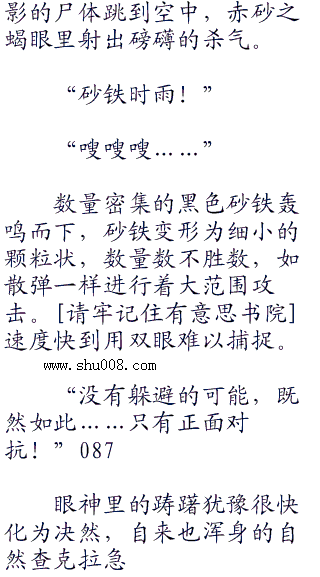 影的尸体跳到空中，赤砂之
蝎眼里射出磅礴的杀气。
“砂铁时雨！”
“嗖嗖嗖……”
数量密集的黑色砂铁轰
鸣而下，砂铁变形为细小的
颗粒状，数量数不胜数，如
散弹一样进行着大范围攻
击。[请牢记住有意思书院]
速度快到用双眼难以捕捉。
www.shu008.com
“没有躲避的可能，既
然如此……只有正面对
抗！”087
眼神里的踌躇犹豫很快
化为决然，自来也浑身的自
然查克拉急